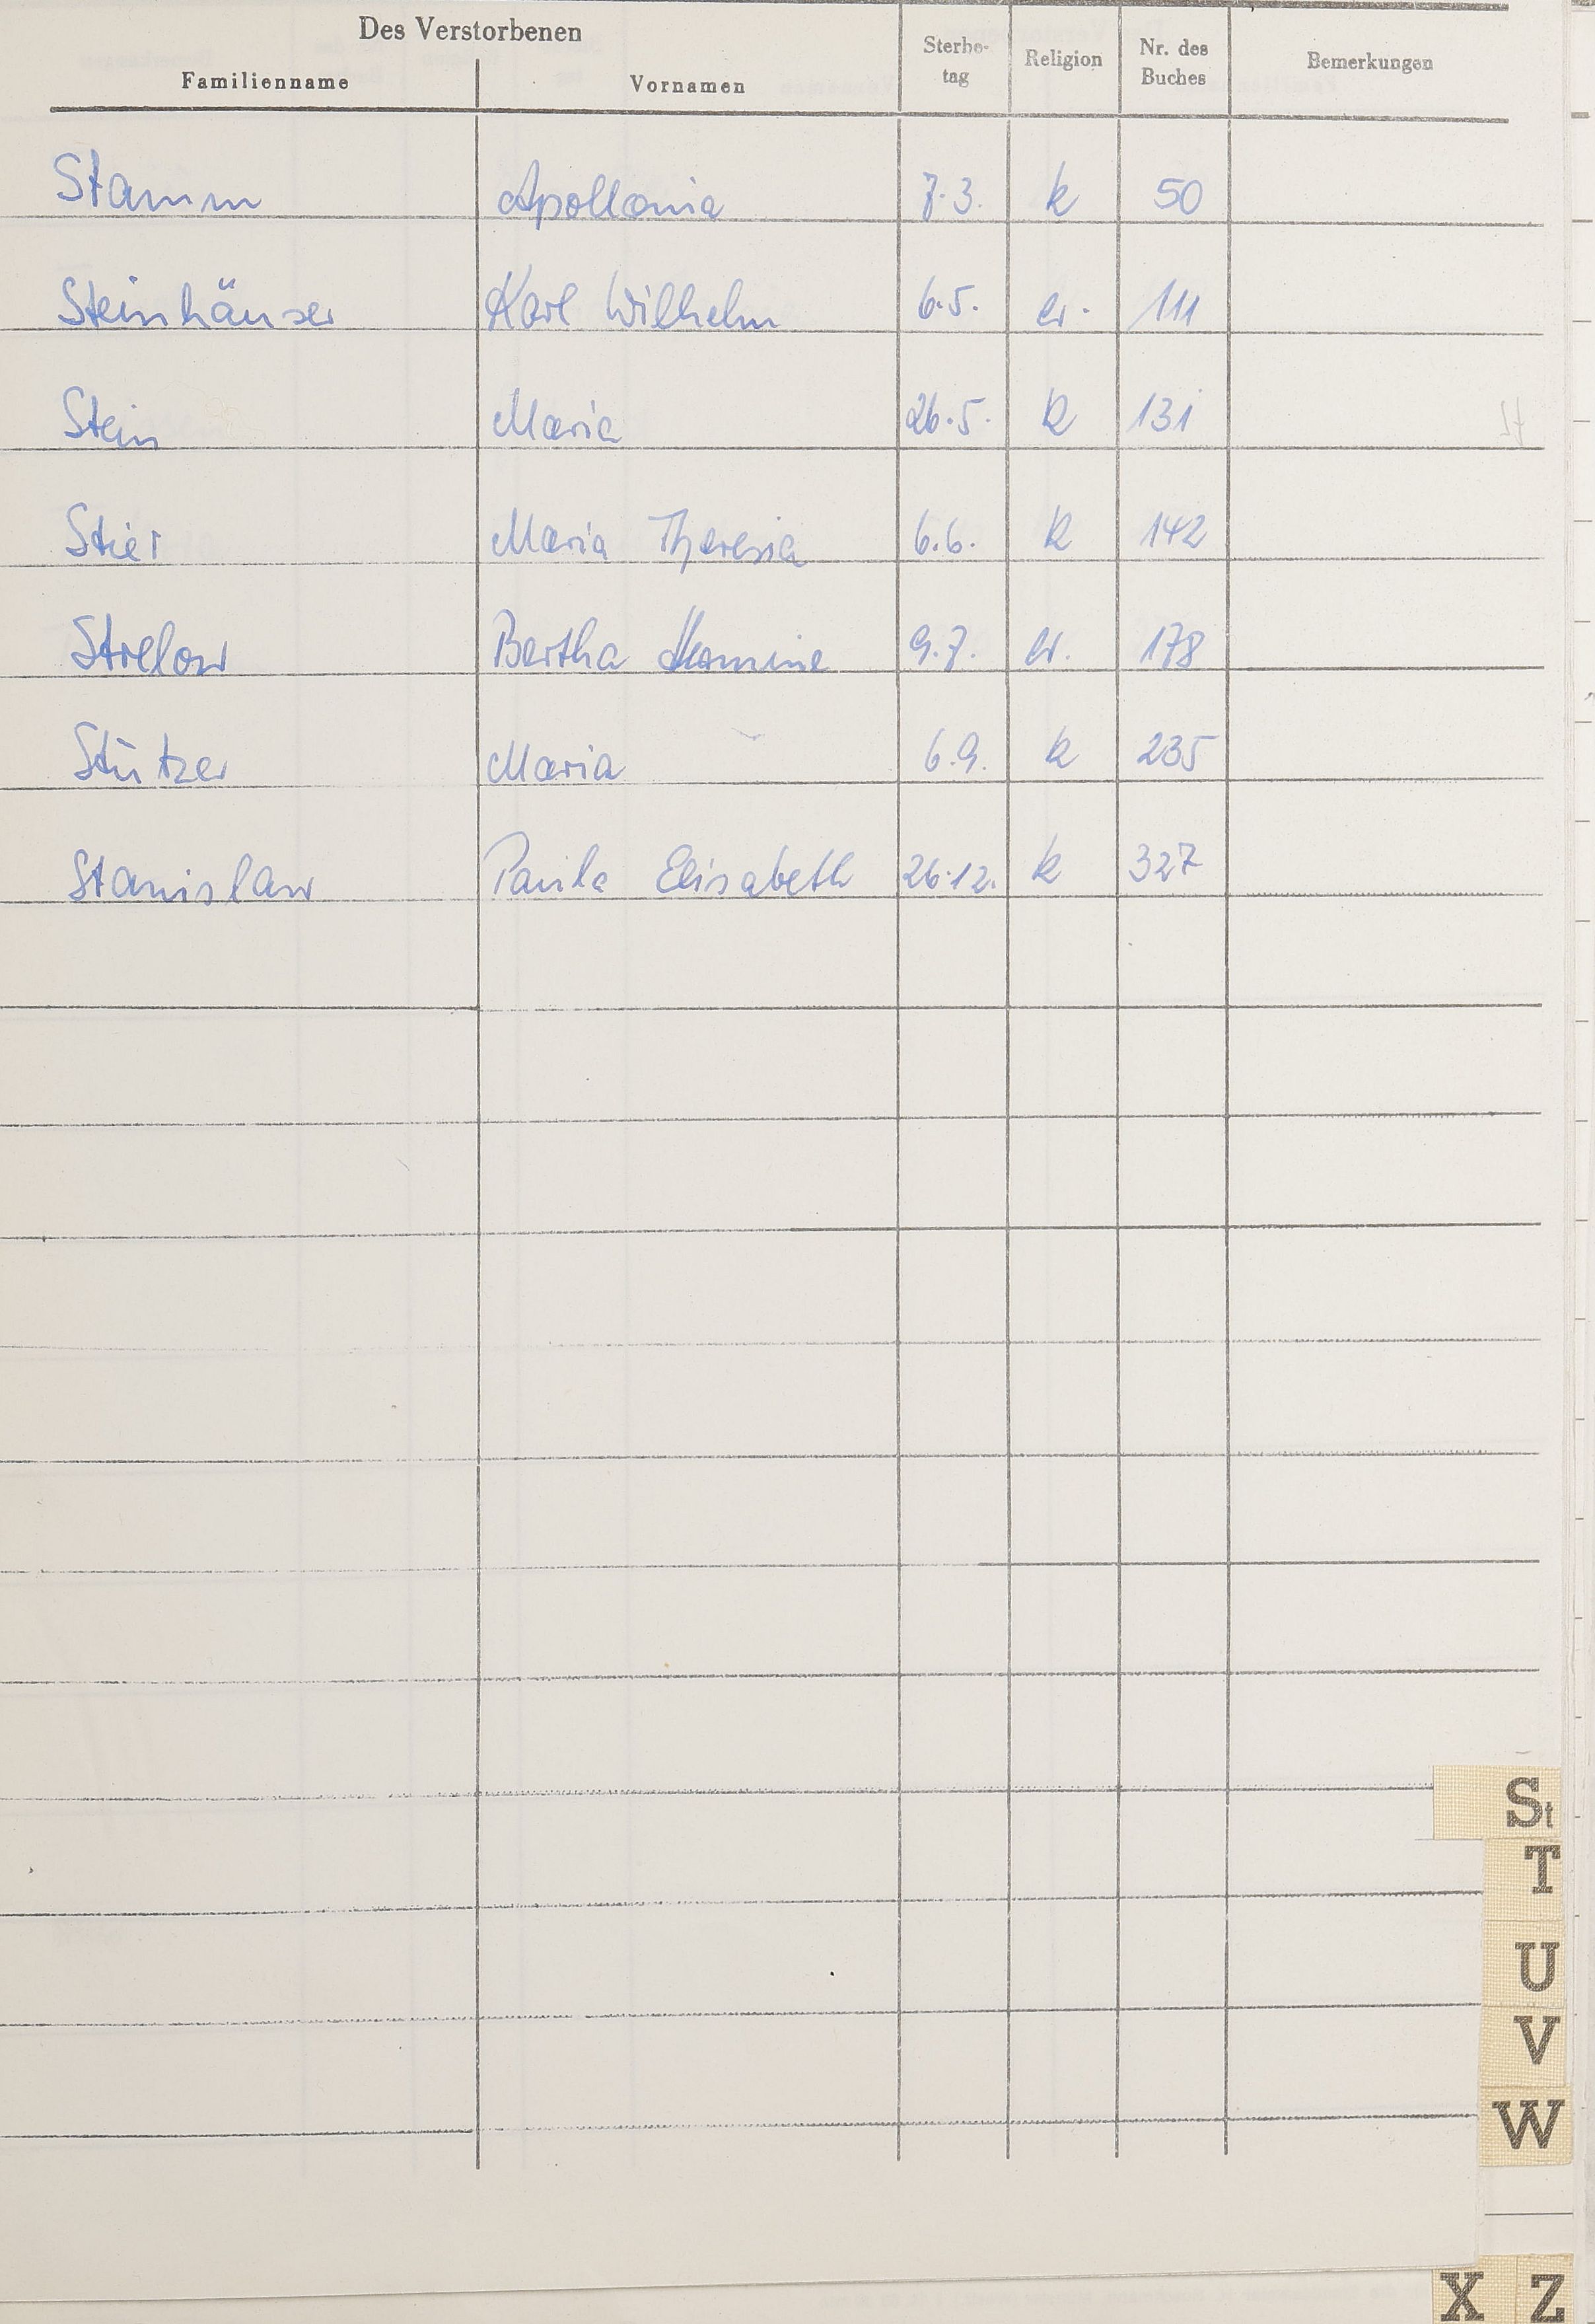 Des Verstorbenen
Familienname Vornamen Sterbe-tag Religion Nr. des Buches Bemerkungen
Stamm Apollonia 7.3. k 50
Steinhäuser Karl Wilhelm 6.5. ev. 111
Stein Maria 26.5. k 131
Stier Maria Theresia 6.6. k 142
Strelow Bertha Hermine 9.7. ev. 178
Stützer Maria 6.9. k 235
Stanislaw Paula Elisabeth 26.12. k 327
St
T
U
V
W
X Z